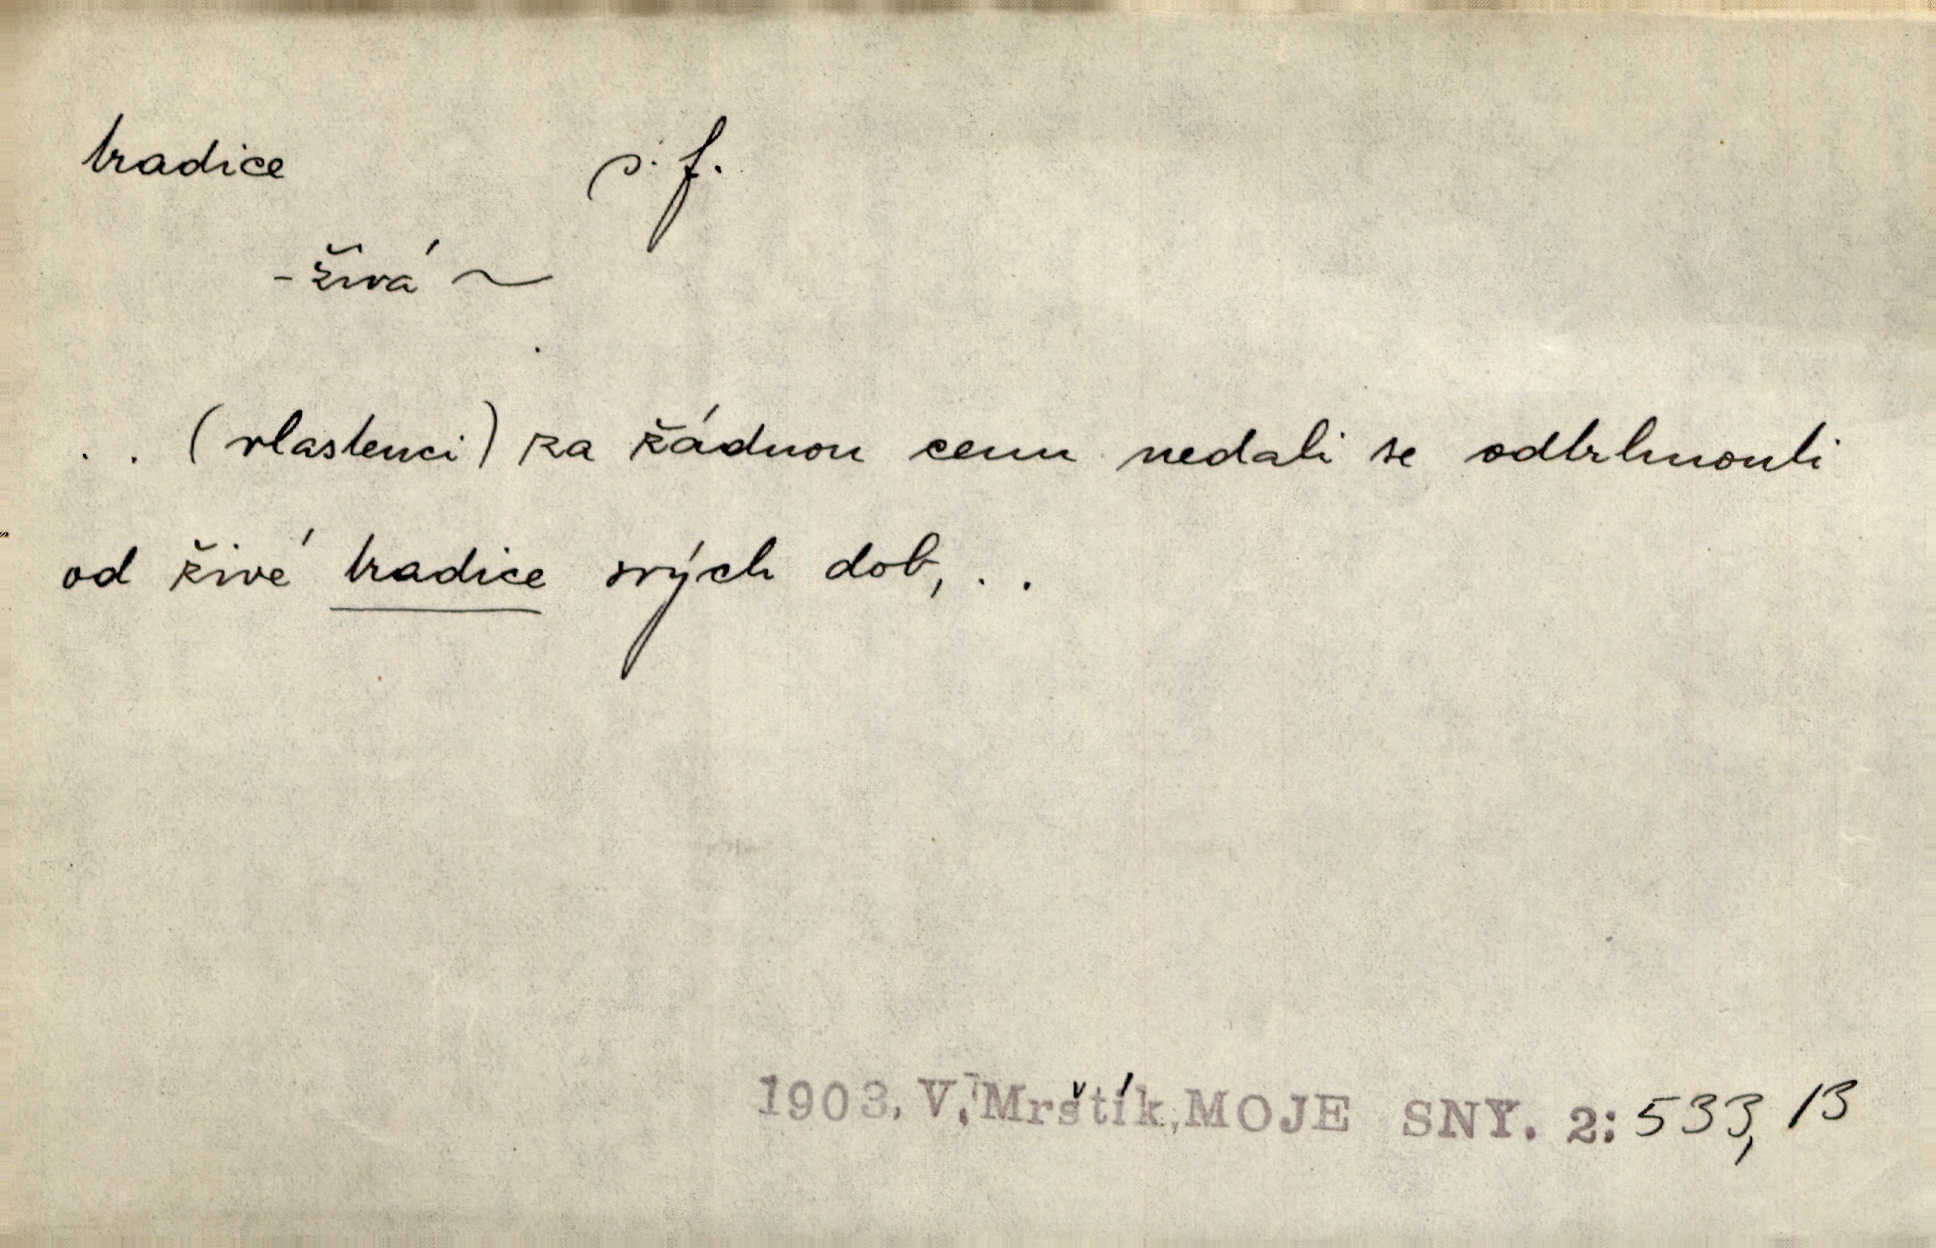 tradice s. f.
- živá ~
. . (vlastenci) za žádnou cenu nedali se odtrhnouti
od živé tradice svých dob, . .
1903. V. Mrštík, MOJE SNY. 2: 533, 13